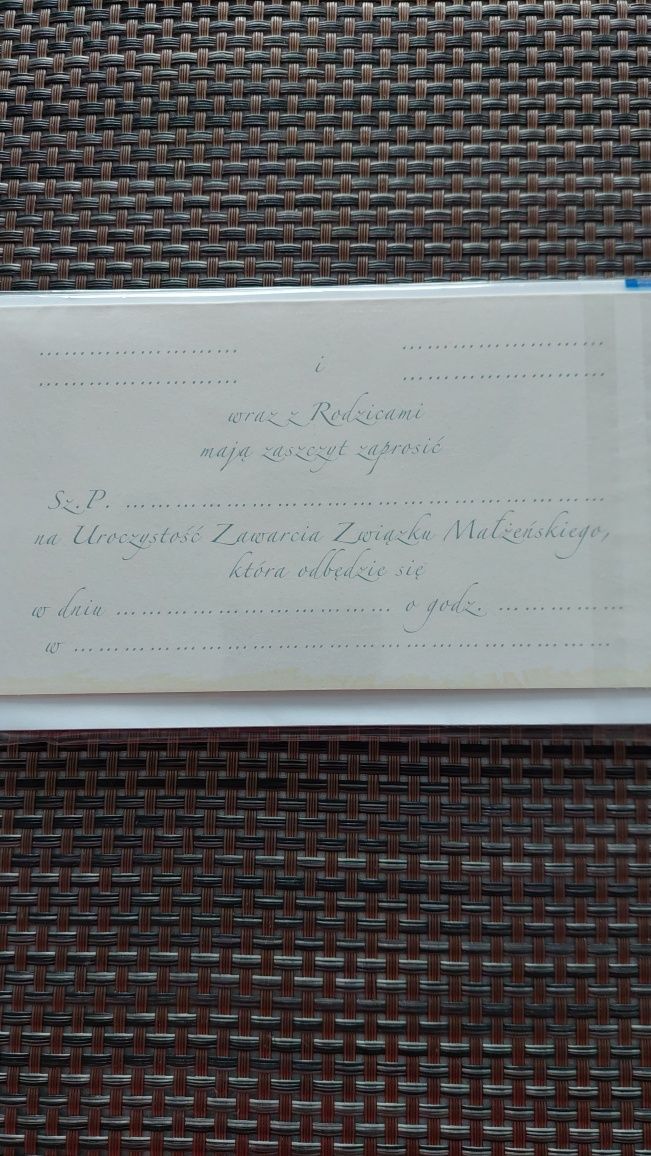 ........................ ........................
i
........................ ........................
wraz z Rodzicami
mają zaszczyt zaprosić
Sz.P. ................................................................
na Uroczystość Zawarcia Związku Małżeńskiego,
która odbędzie się
w dniu .................................... o godz. .................
w ......................................................................